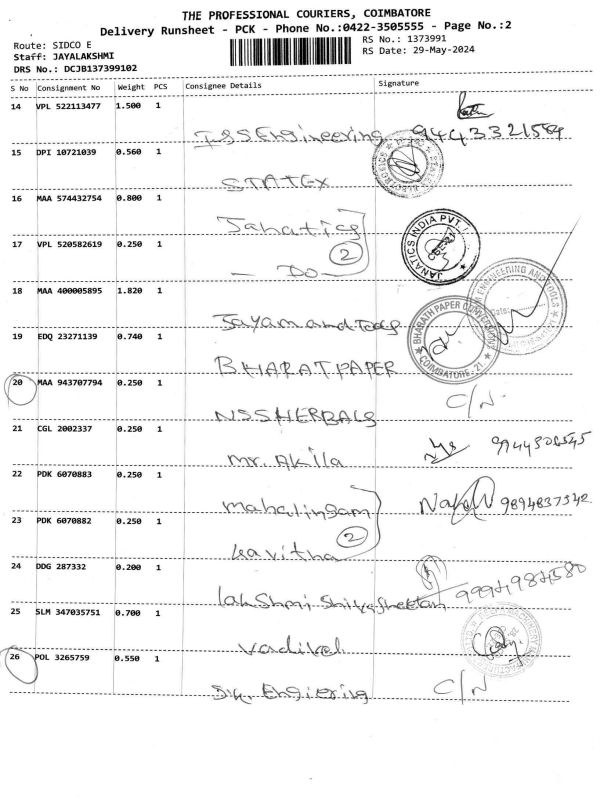 THE PROFESSIONAL COURIERS, COIMBATORE
Delivery Runsheet - PCK - Phone No.:0422-3505555 - Page No.:2
Route: SIDCO E
RS No.: 1373991
Staff: JAYALAKSHMI
RS Date: 29-May-2024
DRS No.: DCJB137399102
S No Consignment No Weight PCS Consignee Details Signature
14 VPL 522113477 1.500 1
I&S Engineering
15 DPI 10721039 0.560 1
STATEX
16 MAA 574432754 0.800 1
Janatics
JANATICS INDIA PVT.
17 VPL 520582619 0.250 1
2
- Do -
18 MAA 400005895 1.820 1
ENGINEERING AND TOOLS
Jayam and Tools
19 EDQ 23271139 0.740 1
BHARATH PAPER
COIMBATORE - 21
BHARAT PAPER
20 MAA 943707794 0.250 1
C/N
NSS HERBALS
21 CGL 2002337 0.250 1
Mr. Akila
22 PDK 6070883 0.250 1
9894837342
Mahalingam
23 PDK 6070882 0.250 1
2
Kavitha
24 DDG 287332 0.200 1
9994984580
Lakshmi
25 SLM 347035751 0.700 1
Vadivel
26 POL 3265759 0.550 1
C/N